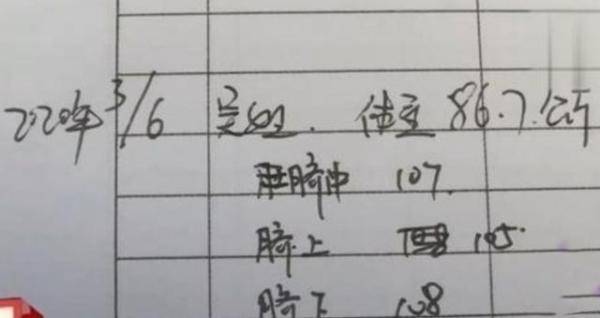 2020年3/6 吴姐. 体重 86.7.公斤
脐中 107.
脐上 105.
脐下 108